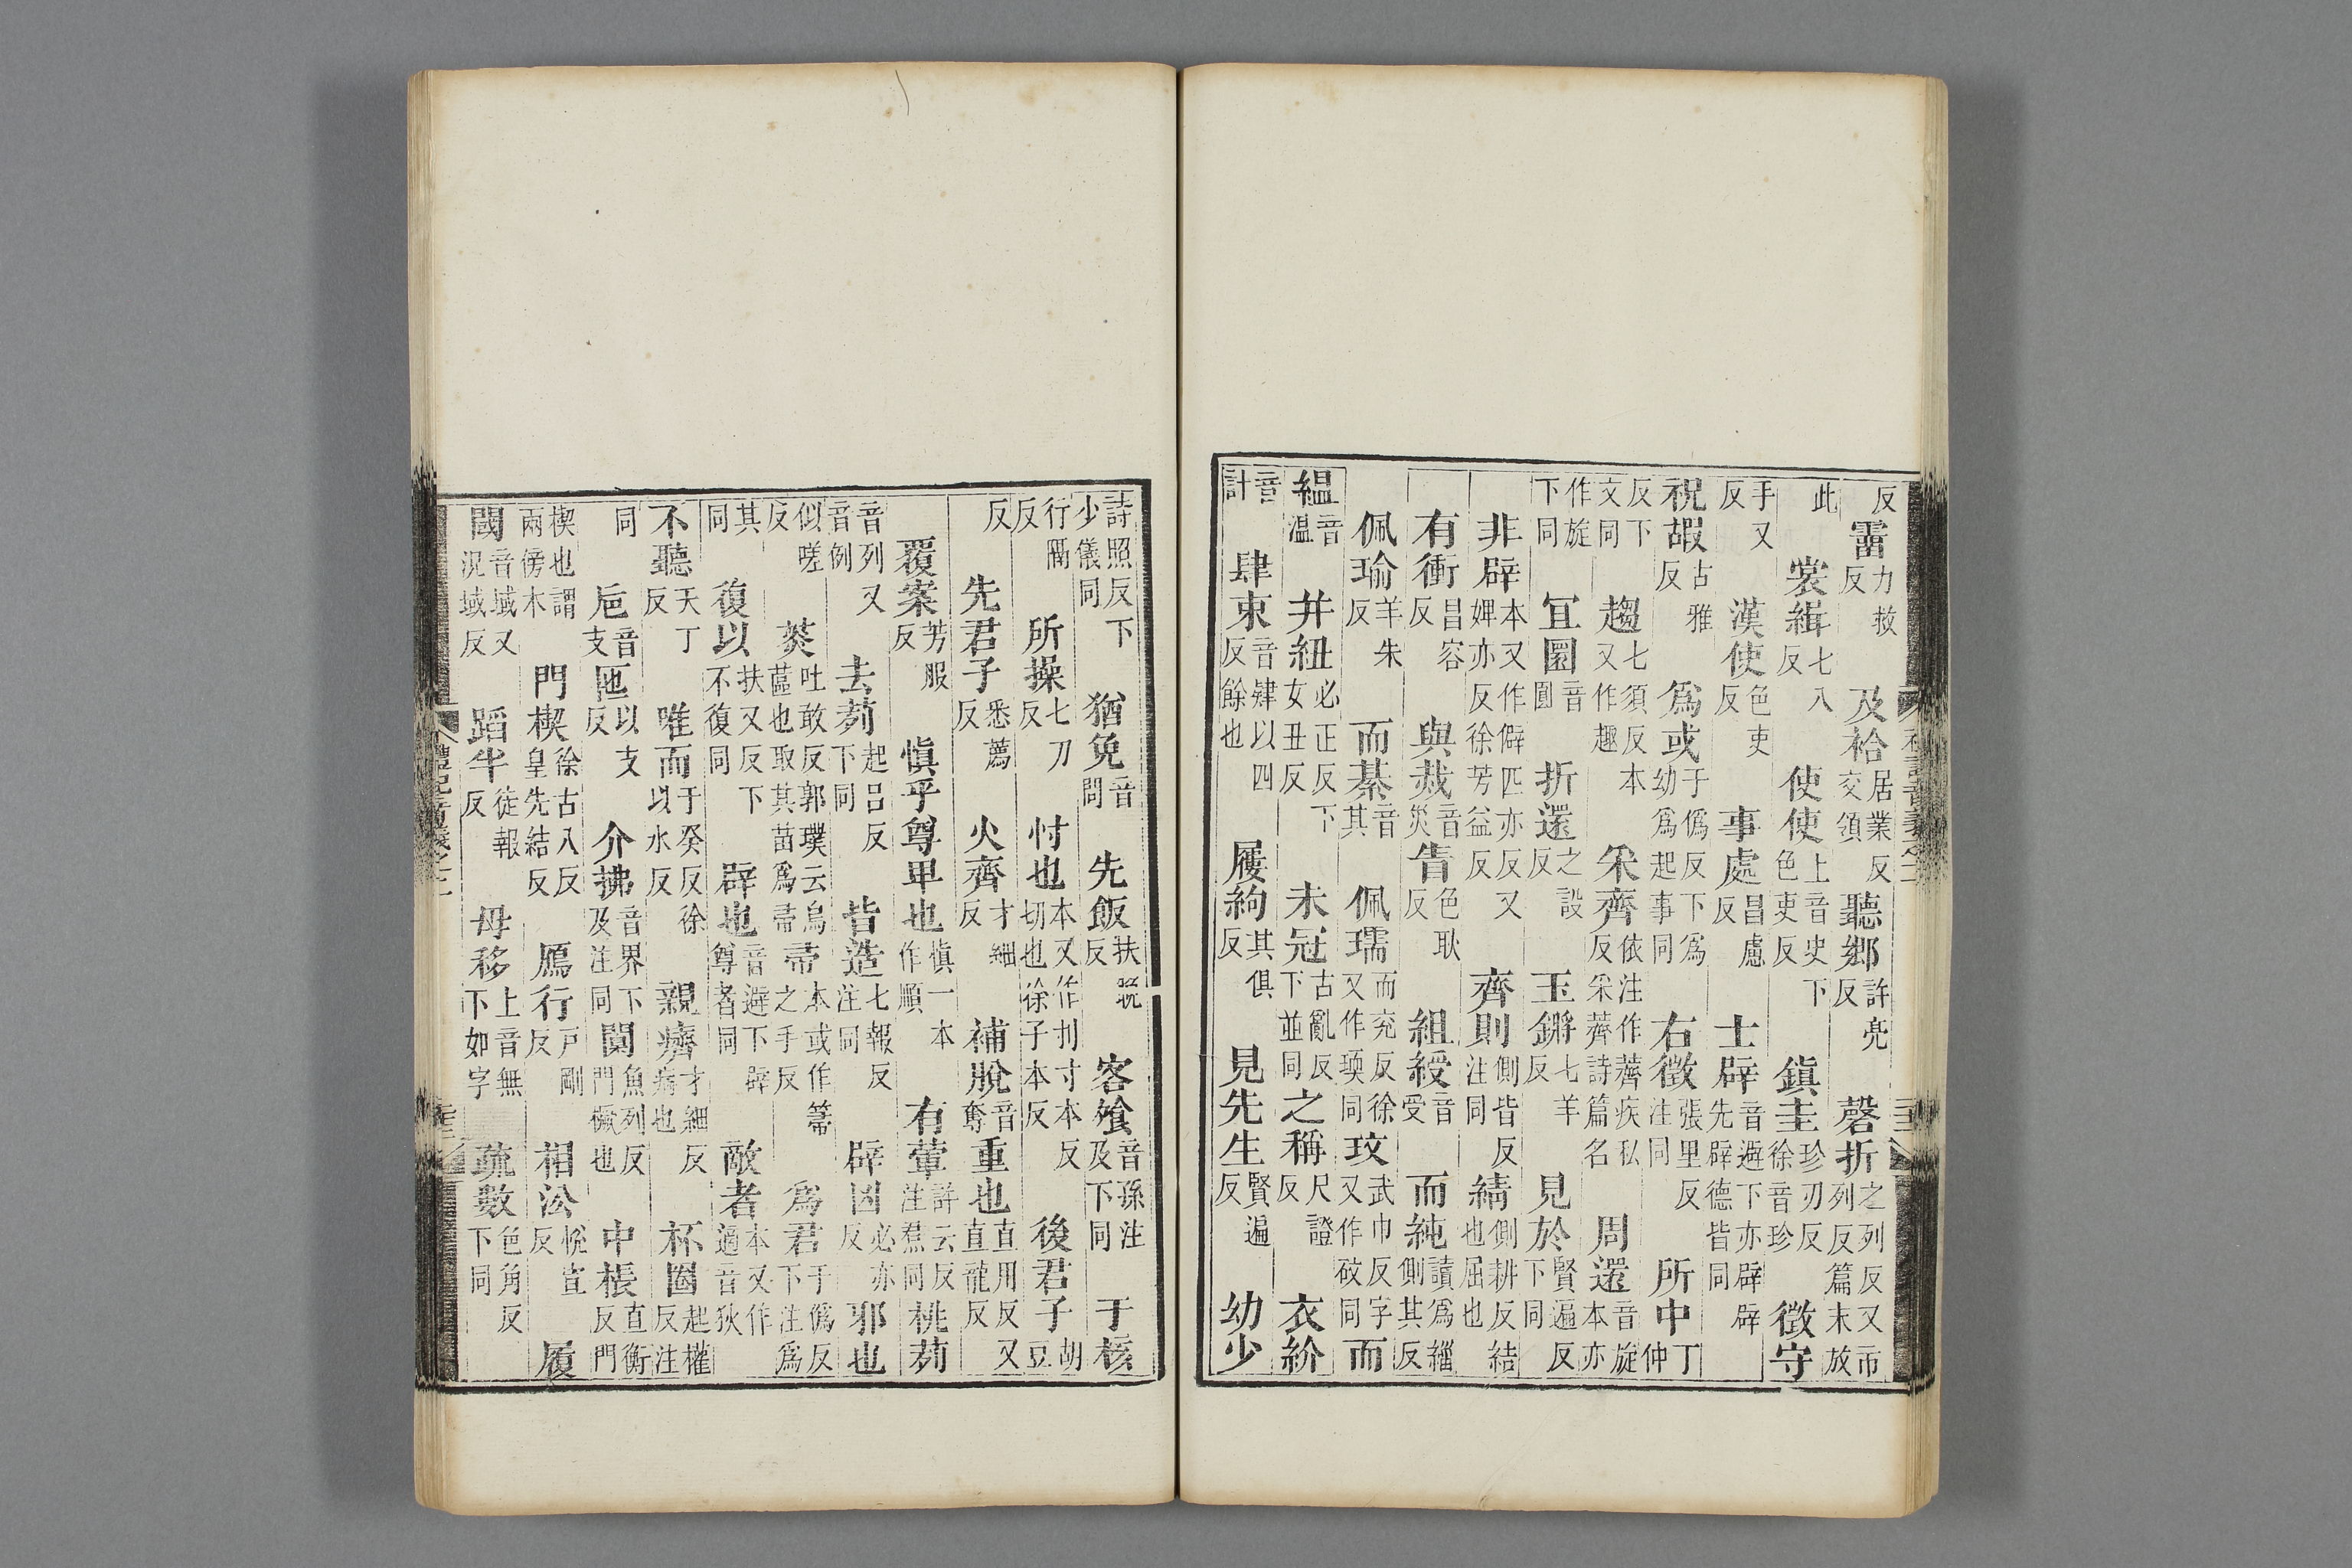 反霤力救反及袷居業反交領聽鄉許亮反磬折之列反又市列反篇末放
此裳緝七入反使使上音史下色吏反鎮圭珍刃反徐音珍徵守
手又反漢使色吏反事處昌慮反士辟音避下亦辟辟先辟德皆同
祝嘏古雅反爲或于僞反下爲幼爲起事同右徵張里反注同所中丁仲
反下文同趨七須反本又作趣采齊依注作薺疾私反采薺詩篇名周還音旋本亦
作旋下同宜圜音圓折還之設反玉鏘七羊反見於賢遍反下同
非辟本又作僻匹亦反又婢亦反徐芳益反齊則側皆反注同綪側耕反結也屈也
有衝昌容反與烖音災眚色耿反組綬音受而純讀爲緇側其反
佩瑜羊朱反而綦音其佩瓀而兖反徐又作瑌同玟武巾反字又作砇同而
縕音溫并紐必正反下女丑反未冠古亂反下並同之稱尺證反衣紒
音計肆束音肄以四反餘也屨絇其俱反見先生賢遍反幼少
詩照反下少儀同猶免音問先飯扶晚反客飧音孫注及下同于核
行隔反所操七刀反忖也本又作刌寸本反切也徐子本反後君子胡豆
反先君子悉薦反火齊才細反補脫音奪重也直用反又直龍反
覆案芳服反愼乎尊卑也愼一本作順有葷許云反注焄同桃茢
音列又音例去茢起呂反下同皆造七報反注同辟凶必亦反邪也
似嗟反菼吐敢反郭璞云烏蓲也取其苗爲帚帚本或作箒之手反爲君于僞反下注爲
其同復以扶又反下不復同辟也音避下辟尊者同敵者本又作適音狄
不聽天丁反唯而于癸反徐以水反親癠才細反病也杯圈起權反注
同巵音支匜以支反介拂音界下及注同闑魚列反門橛也中棖直衡反門
楔也謂兩傍木門楔徐古八反皇先結反鴈行戶剛反相沿悅宣反履
閾音域又況域反蹈半徒報反毋移上音無下如字疏數色角反下同